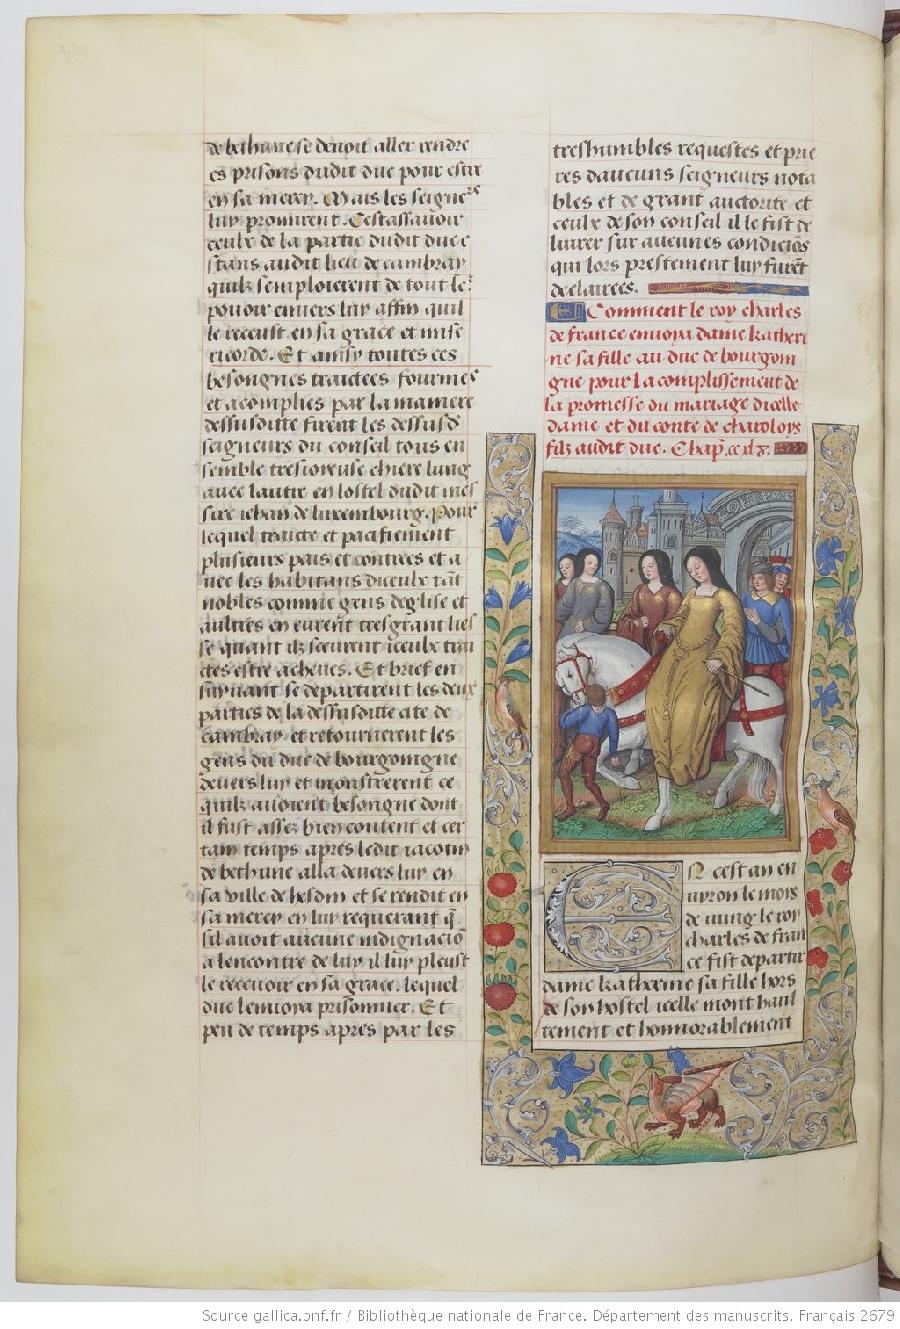 de bethune se devoit aller rendre
es prisons dudit duc pour estre
en sa mercy. Mais les seignrs
luy promirent. Cestassavoir
ceulx de la partie dudit duc e
stans audit lieu de cambray
quilz semploieroient de tout ler
povoir envers luy affin quil
le receust en sa grace et mise
ricorde. Et ainsy toutes ces
besongnes traictees fournies
et acomplies par la maniere
dessusditte firent les dessusds
seigneurs du conseil tous en
semble tresioieuse chiere lung
avec lautre en lostel dudit mes
sire iehan de luxembourg. Pour
lequel traicte et pacifiement
plusieurs pais et contrees et a
vec les habitans diceulx tāt
nobles comme gens deglise et
aultres en eurent tresgrant lies
se quant ilz sceurent iceulx trai
cties estre acheves. Et brief en
suyvant se departirent les deux
parties de la dessusditte cite de
cambray et retournerent les
gens du duc de bourgoingne
devers luy et monstrerent ce
quilz avoient besongne dont
il fust assez bien content et cer
tain temps apres ledit iacotin
de bethune alla devers luy en
sa ville de hesdin et se rendit en
sa mercy en luy requerant q̄
sil avoit aucune indignaciō
a lencontre de luy il luy pleust
le recevoir en sa grace. lequel
duc lenvoya prisonnier. Et
peu de temps apres par les
treshumbles requestes et prie
res daucuns seigneurs nota
bles et de grant auctorite et
ceulx de son conseil il le fist de
livrer sur aucunes condiciōs
qui lors prestement luy furēt
declairees.
Comment le roy charles
de france envoya dame katheri
ne sa fille au duc de bourgoin
gne pour lacomplissement de
la promesse du mariage dicelle
dame et du conte de charoloys
filz audit duc. Chap.
En cest an en
viron le mois
de iuing le roy
charles de fran
ce fist departir
dame katherine sa fille hors
de son hostel icelle mont haul
tement et honnorablement
Source gallica.bnf.fr / Bibliothèque nationale de France. Département des manuscrits. Français 2679